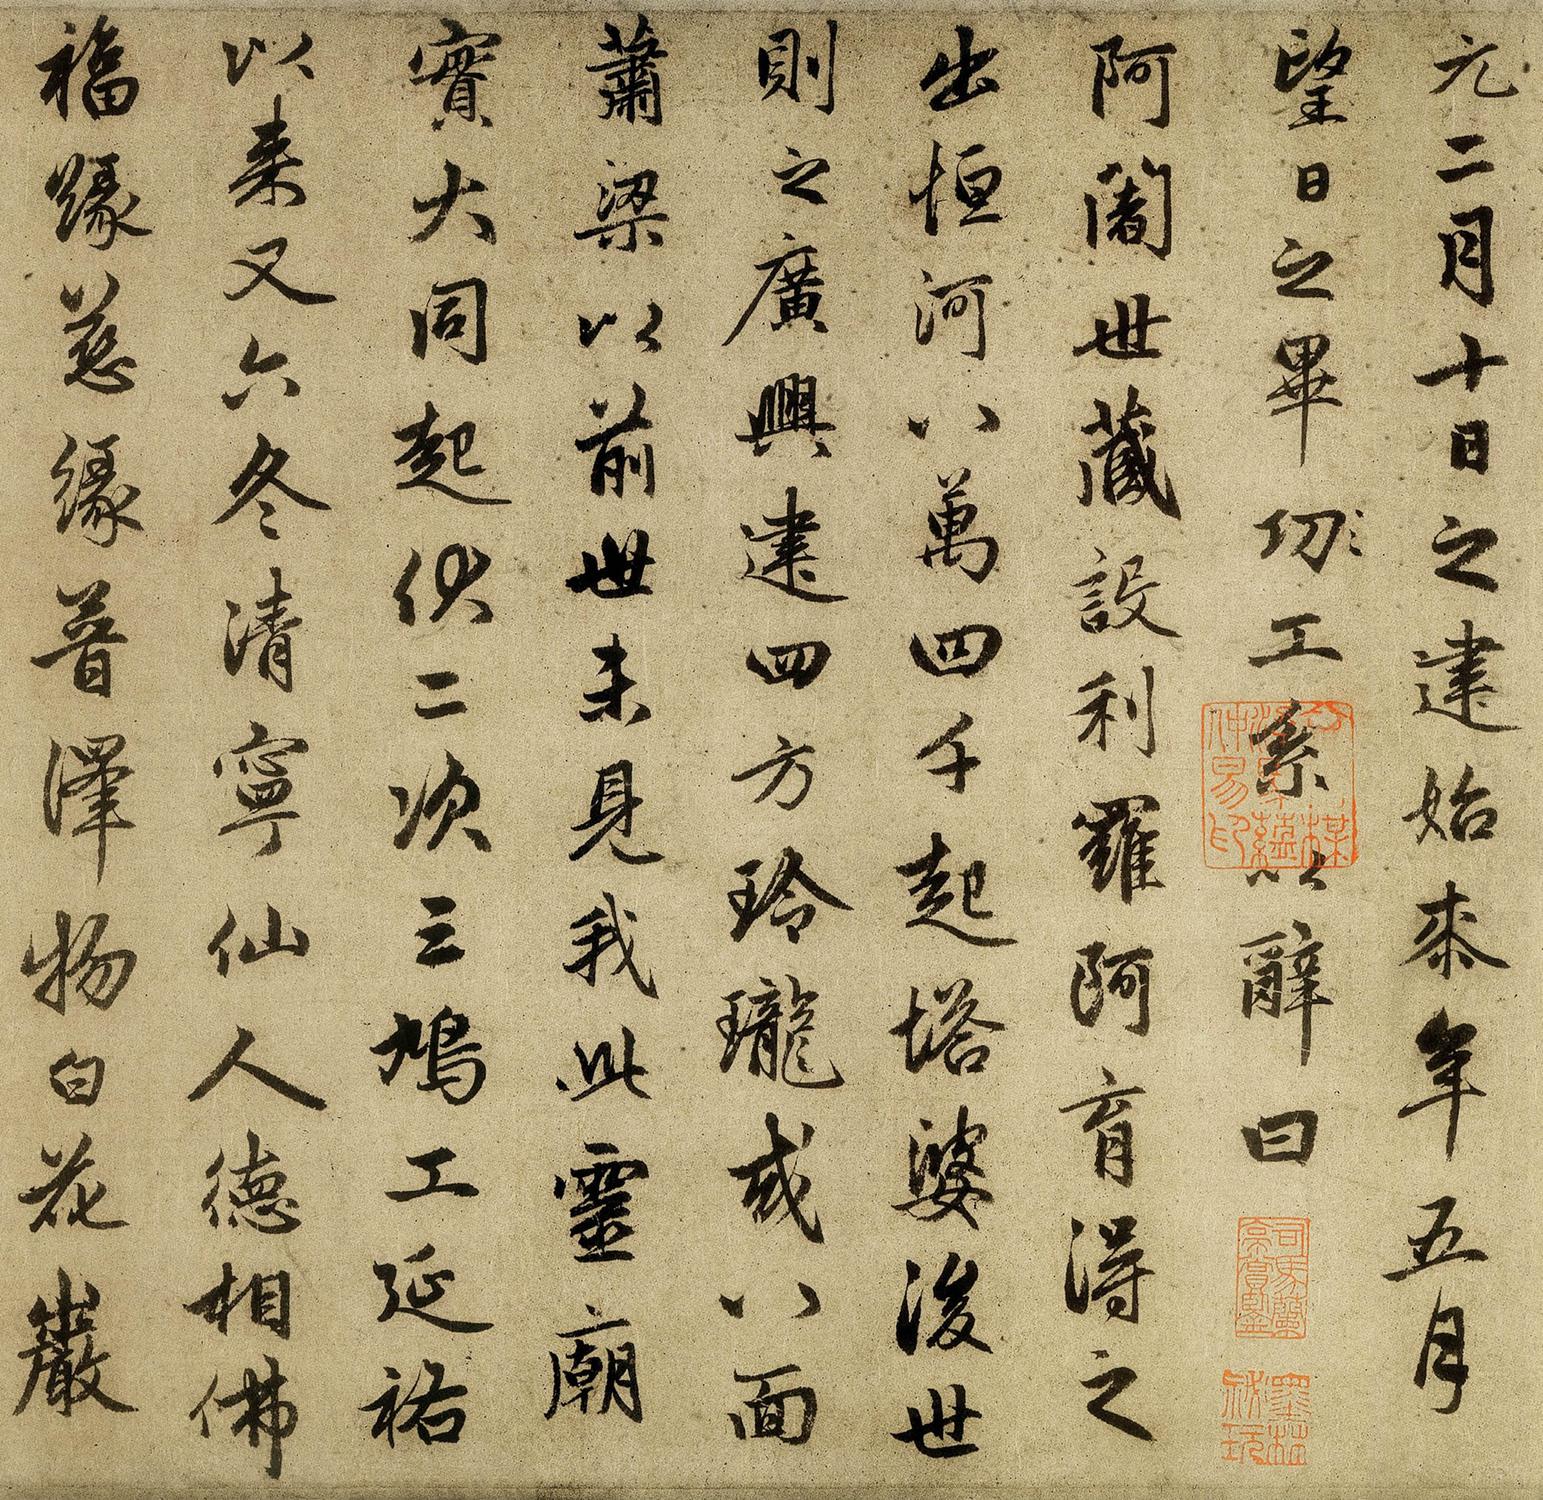 元二月十日之建始來年五月
望日之畢功工系以辭曰
阿闍世藏設利羅阿育得之
出恒河八萬四千起塔婆後世
則之廣興建四方玲瓏或八面
蕭梁以前世未見我此靈廟
實大同起伏二次三鳩工延祐
以来又六冬清寧仙人德相佛
福緣慈緣普澤物白花巖